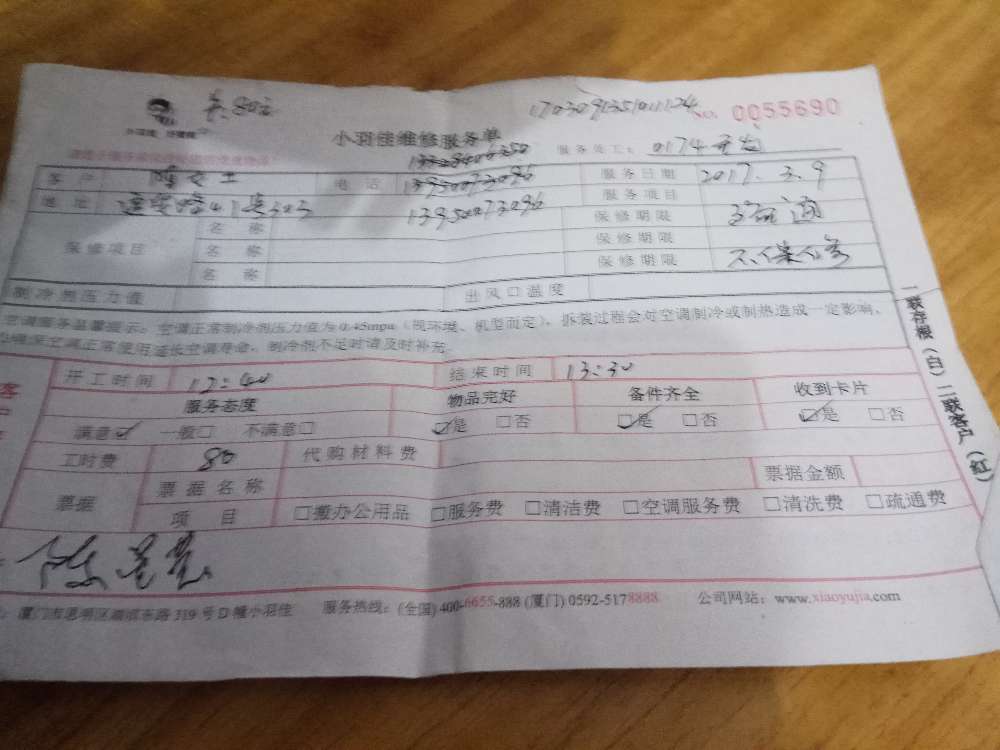 80元
1703091351011124
NO: 0055690
小羽佳 好管家
小羽佳维修服务单
服务技工: 0174
客户 陈女士 电话 13950073096 服务日期 2017.3.9
地址 41号303 13950073096 服务项目
保修项目 名称 保修期限 疏通
名称 保修期限
名称 保修期限 不保修
制冷剂压力值 出风口温度
空调服务温馨提示:空调正常制冷剂压力值为0.45mpa(视环境、机型而定),拆装过程会对空调制冷或制热造成一定影响,
空调正常使用延长空调寿命,制冷剂不足时请及时补充
开工时间 12:40 结束时间 13:30
服务态度 物品完好 备件齐全 收到卡片
满意☑ 一般□ 不满意□ ☑是 □否 ☑是 □否 ☑是 □否
工时费 80 代购材料费
票据 票据名称 票据金额
项目 □搬办公用品 □服务费 □清洁费 □空调服务费 □清洗费 □疏通费
厦门市思明区湖滨东路319号D幢小羽佳 服务热线:(全国) 400-6655-888 (厦门) 0592-5178888 公司网站:www.xiaoyujia.com
一联存根(白)二联客户(红)